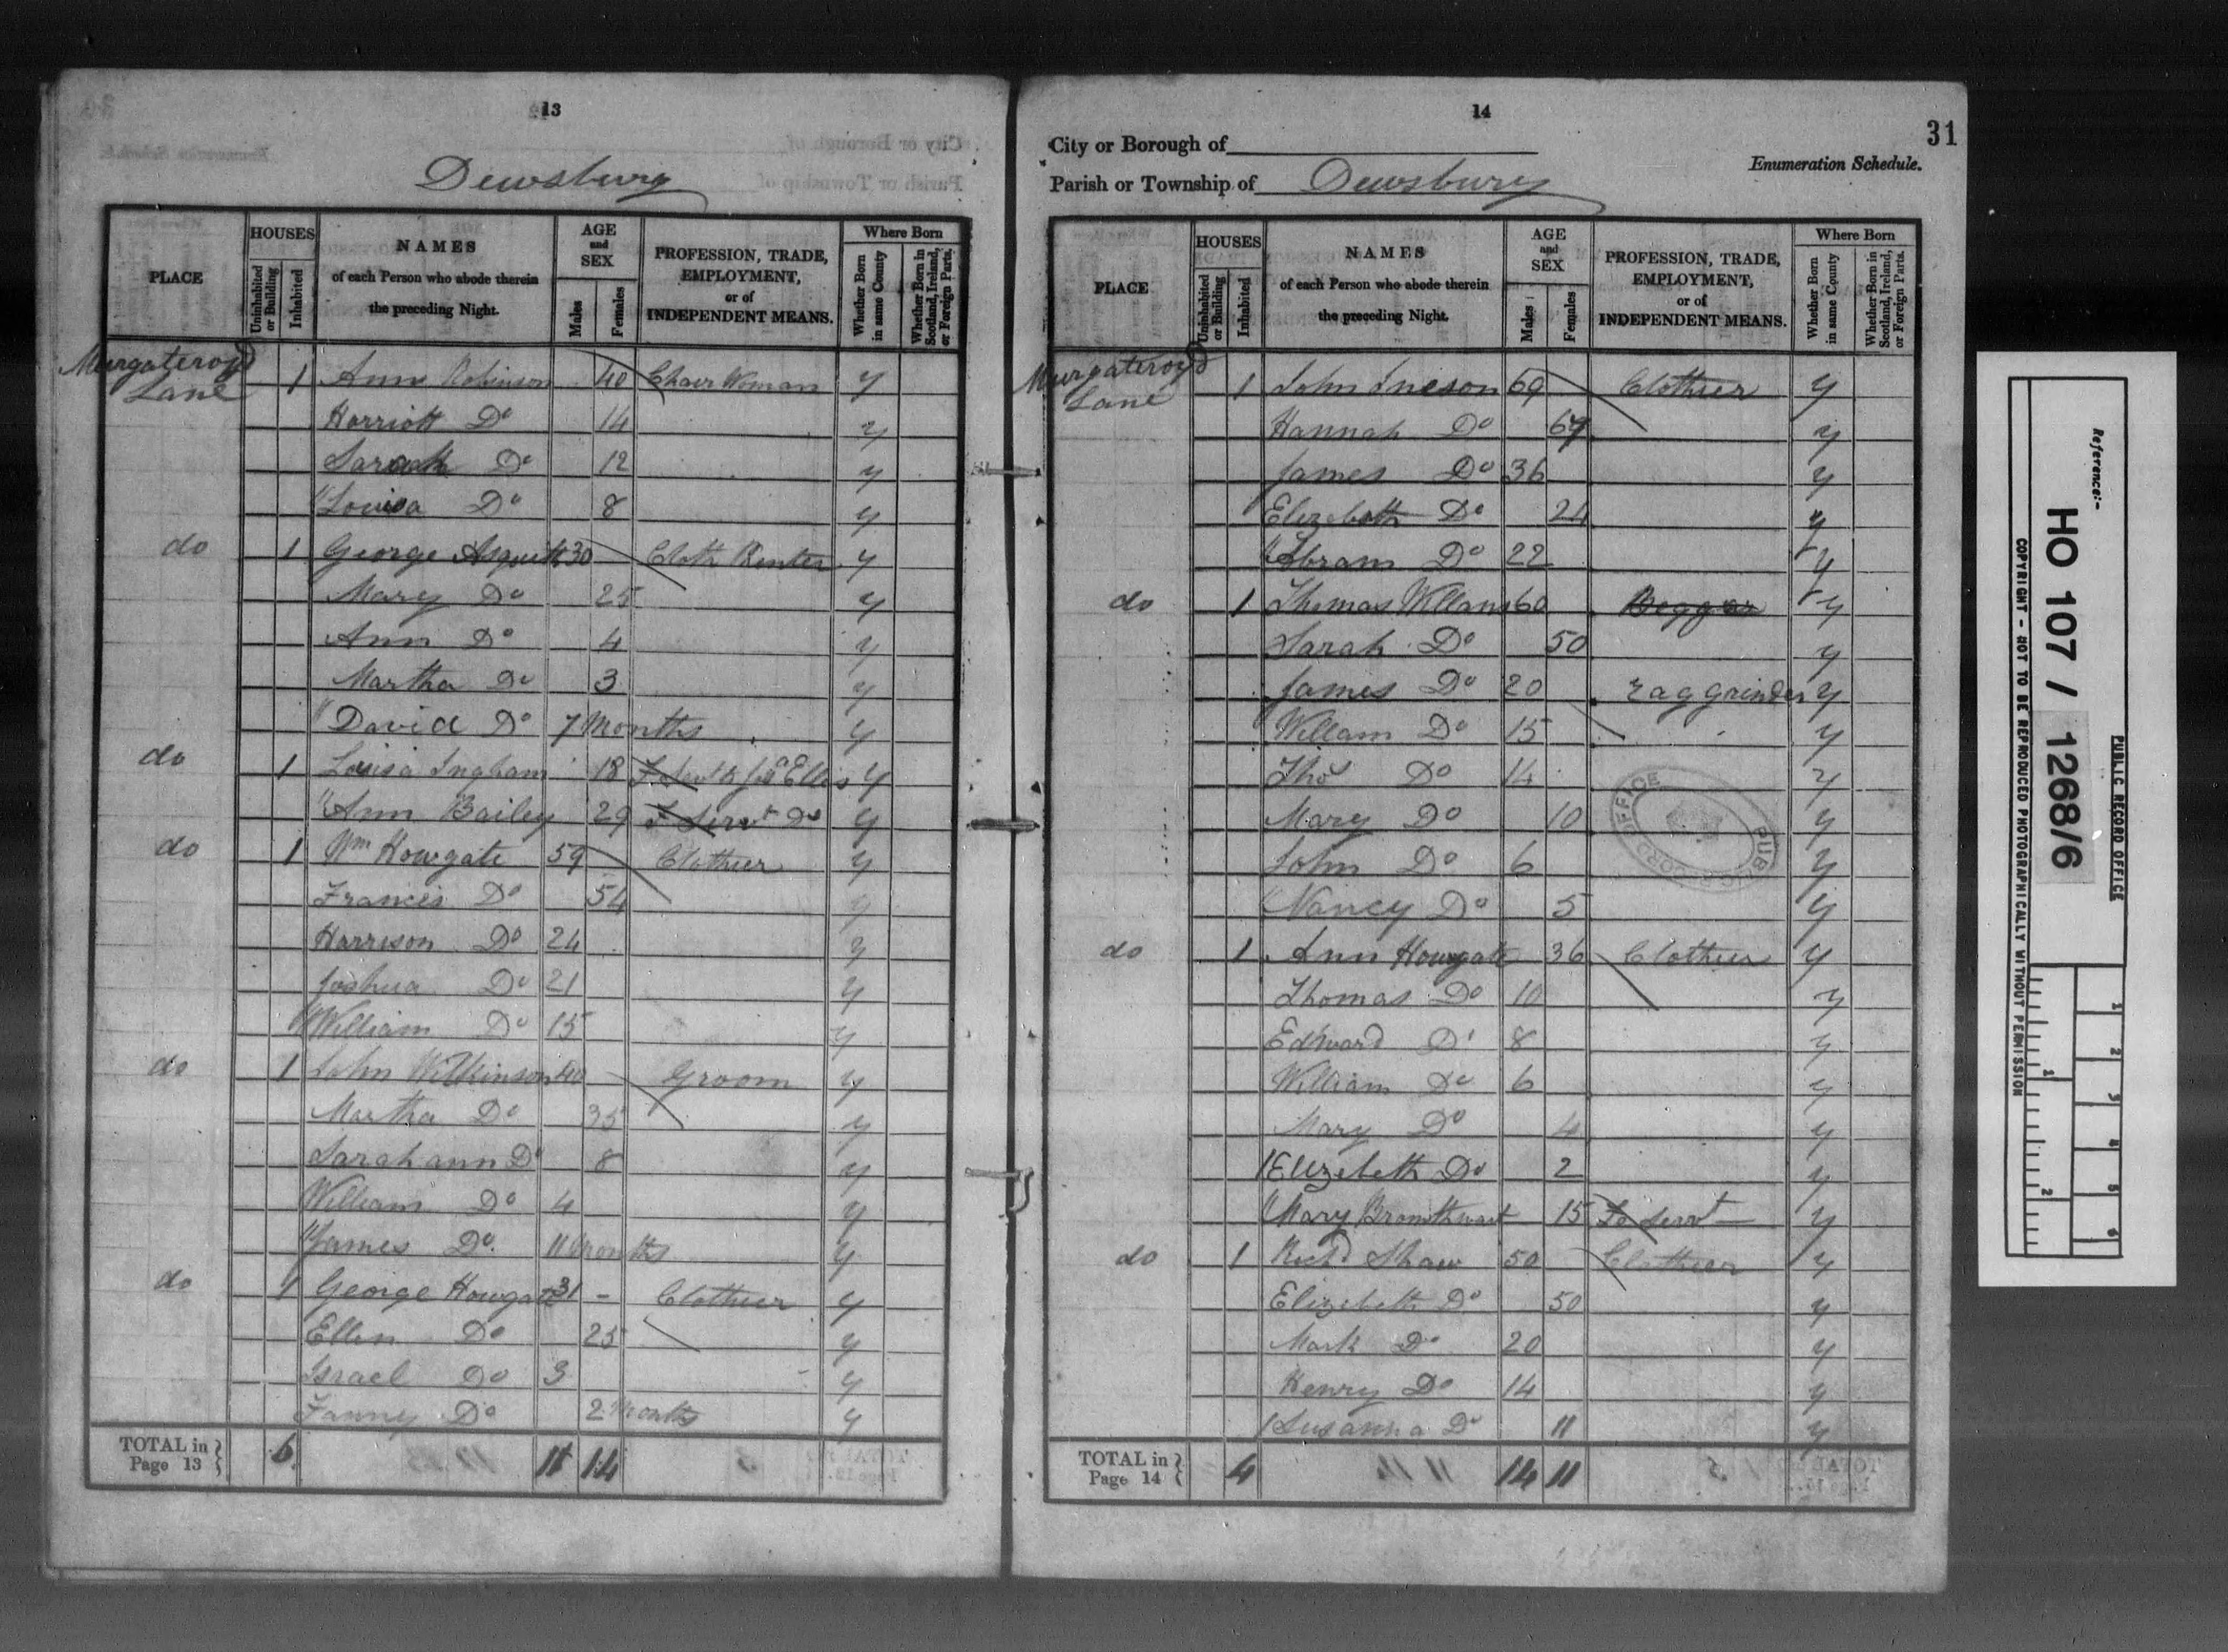 13
Dewsbury
PLACE
HOUSES
Uninhabited or Building
Inhabited
NAMES
of each Person who abode therein
the preceding Night.
AGE
and
SEX
Males
Females
PROFESSION, TRADE,
EMPLOYMENT,
or of
INDEPENDENT MEANS.
Where Born
Whether Born in same County
Whether Born in Scotland, Ireland, or Foreign Parts.
Murgateroyd Lane 1 Ann Robinson 40 Chair Woman y
Harriott Do 14 y
Sarah Do 12 y
Louisa Do 8 y
do 1 George Asquith 30 Cloth y
Mary Do 25 y
Ann Do 4 y
Martha Do 3 y
David Do 7 Months y
do 1 Louisa Ingham 18 F Servt to Ellis y
Ann Bailey 29 F Servt Do y
do 1 Wm Howgate 59 Clothier y
Francis Do 54 y
Harrison Do 24 y
Joshua Do 21 y
William Do 15 y
do 1 John Wilkinson 40 Groom y
Martha Do 35 y
Sarah ann Do 8 y
William Do 4 y
James Do 11 Months y
do 1 George Howgate 31 - Clothier y
Ellen Do 25 y
Israel Do 3 y
Fanny Do 2 Months y
TOTAL in Page 13 6 11 14
14
31
City or Borough of
Enumeration Schedule.
Parish or Township of Dewsbury
PLACE
HOUSES
Uninhabited or Building
Inhabited
NAMES
of each Person who abode therein
the preceding Night.
AGE
and
SEX
Males
Females
PROFESSION, TRADE,
EMPLOYMENT,
or of
INDEPENDENT MEANS.
Where Born
Whether Born in same County
Whether Born in Scotland, Ireland, or Foreign Parts.
Murgateroyd Lane 1 John Ineson 69 Clothier y
Hannah Do 67 y
James Do 36 y
Elizebeth Do 24 y
Abram Do 22 y
do 1 Thomas Willans 60 Beggar y
Sarah Do 50 y
James Do 20 rag grinder y
Willam Do 15 y
Thos Do 14 y
Mary Do 10 y
John Do 6 y
Nancy Do 5 y
do 1 Ann Howgate 36 Clothier y
Thomas Do 10 y
Edward Do 8 y
William Do 6 y
Mary Do 4 y
Elizebeth Do 2 y
Mary 15 Fe Servt y
do 1 Richd Shaw 50 Clothier y
Elizebeth Do 50 y
Mark Do 20 y
Henry Do 14 y
Susanna Do 11 y
TOTAL in Page 14 4 14 11
PUBLIC RECORD OFFICE
Reference:-
HO 107 / 1268/6
PUBLIC RECORD OFFICE
COPYRIGHT - NOT TO BE REPRODUCED PHOTOGRAPHICALLY WITHOUT PERMISSION
1 2 3 4 5 6
1 2